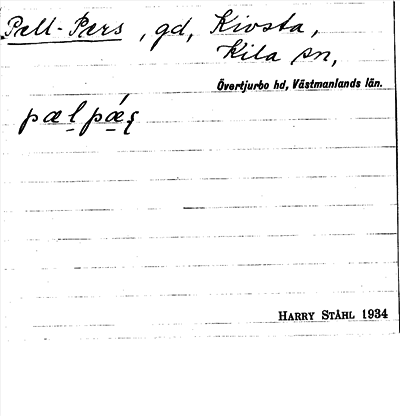 Pæll-Pærs, gd, Kivsta,
Kila sn,
Övertjurbo hd, Västmanlands län.
pælpǽʂ
HARRY STÅHL 1934